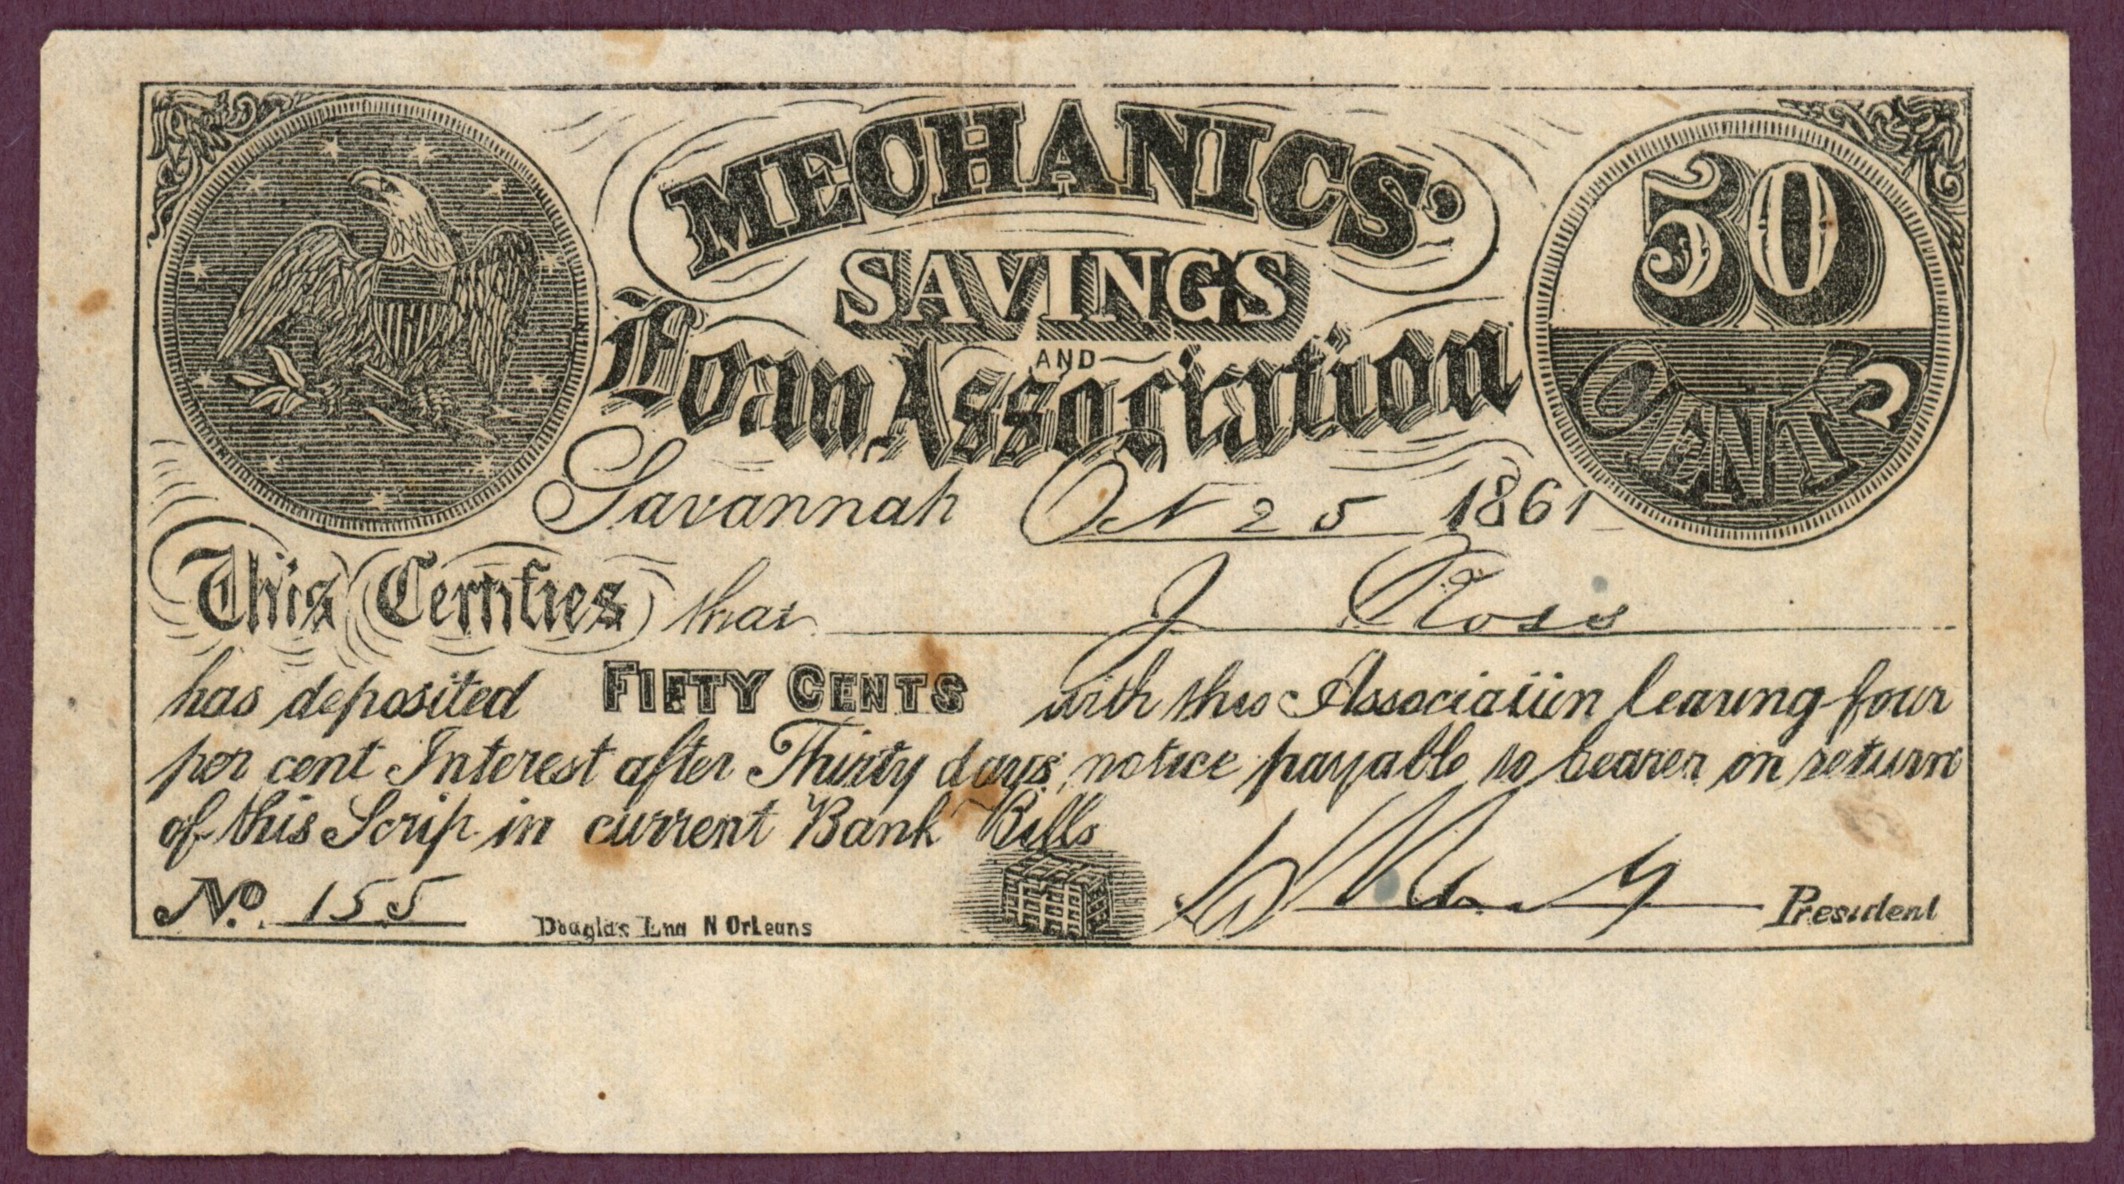 MECHANICS'
SAVINGS
AND
Loan Association
50
CENTS
Savannah Oct 25 1861
This Certifies that J Ross
has deposited FIFTY CENTS with this Association bearing four
per cent Interest after Thirty days notice payable to bearer on return
of this Scrip in current Bank Bills
No. 155
Douglas Eng N Orleans
President